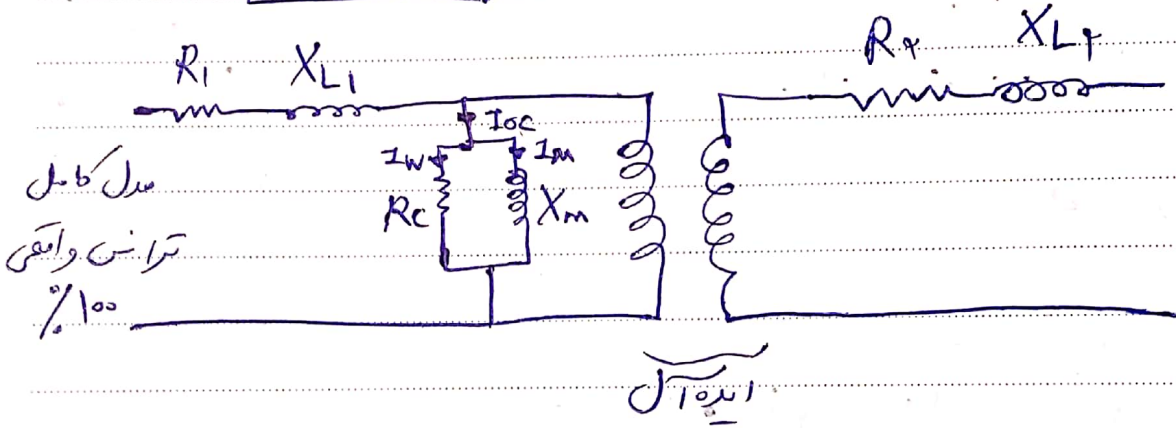 R1 XL1 R۲ XL۲
Ioc
Iw Im
Rc Xm
مدل کامل
ترانس واقعی
%۱۰۰
ایده آل